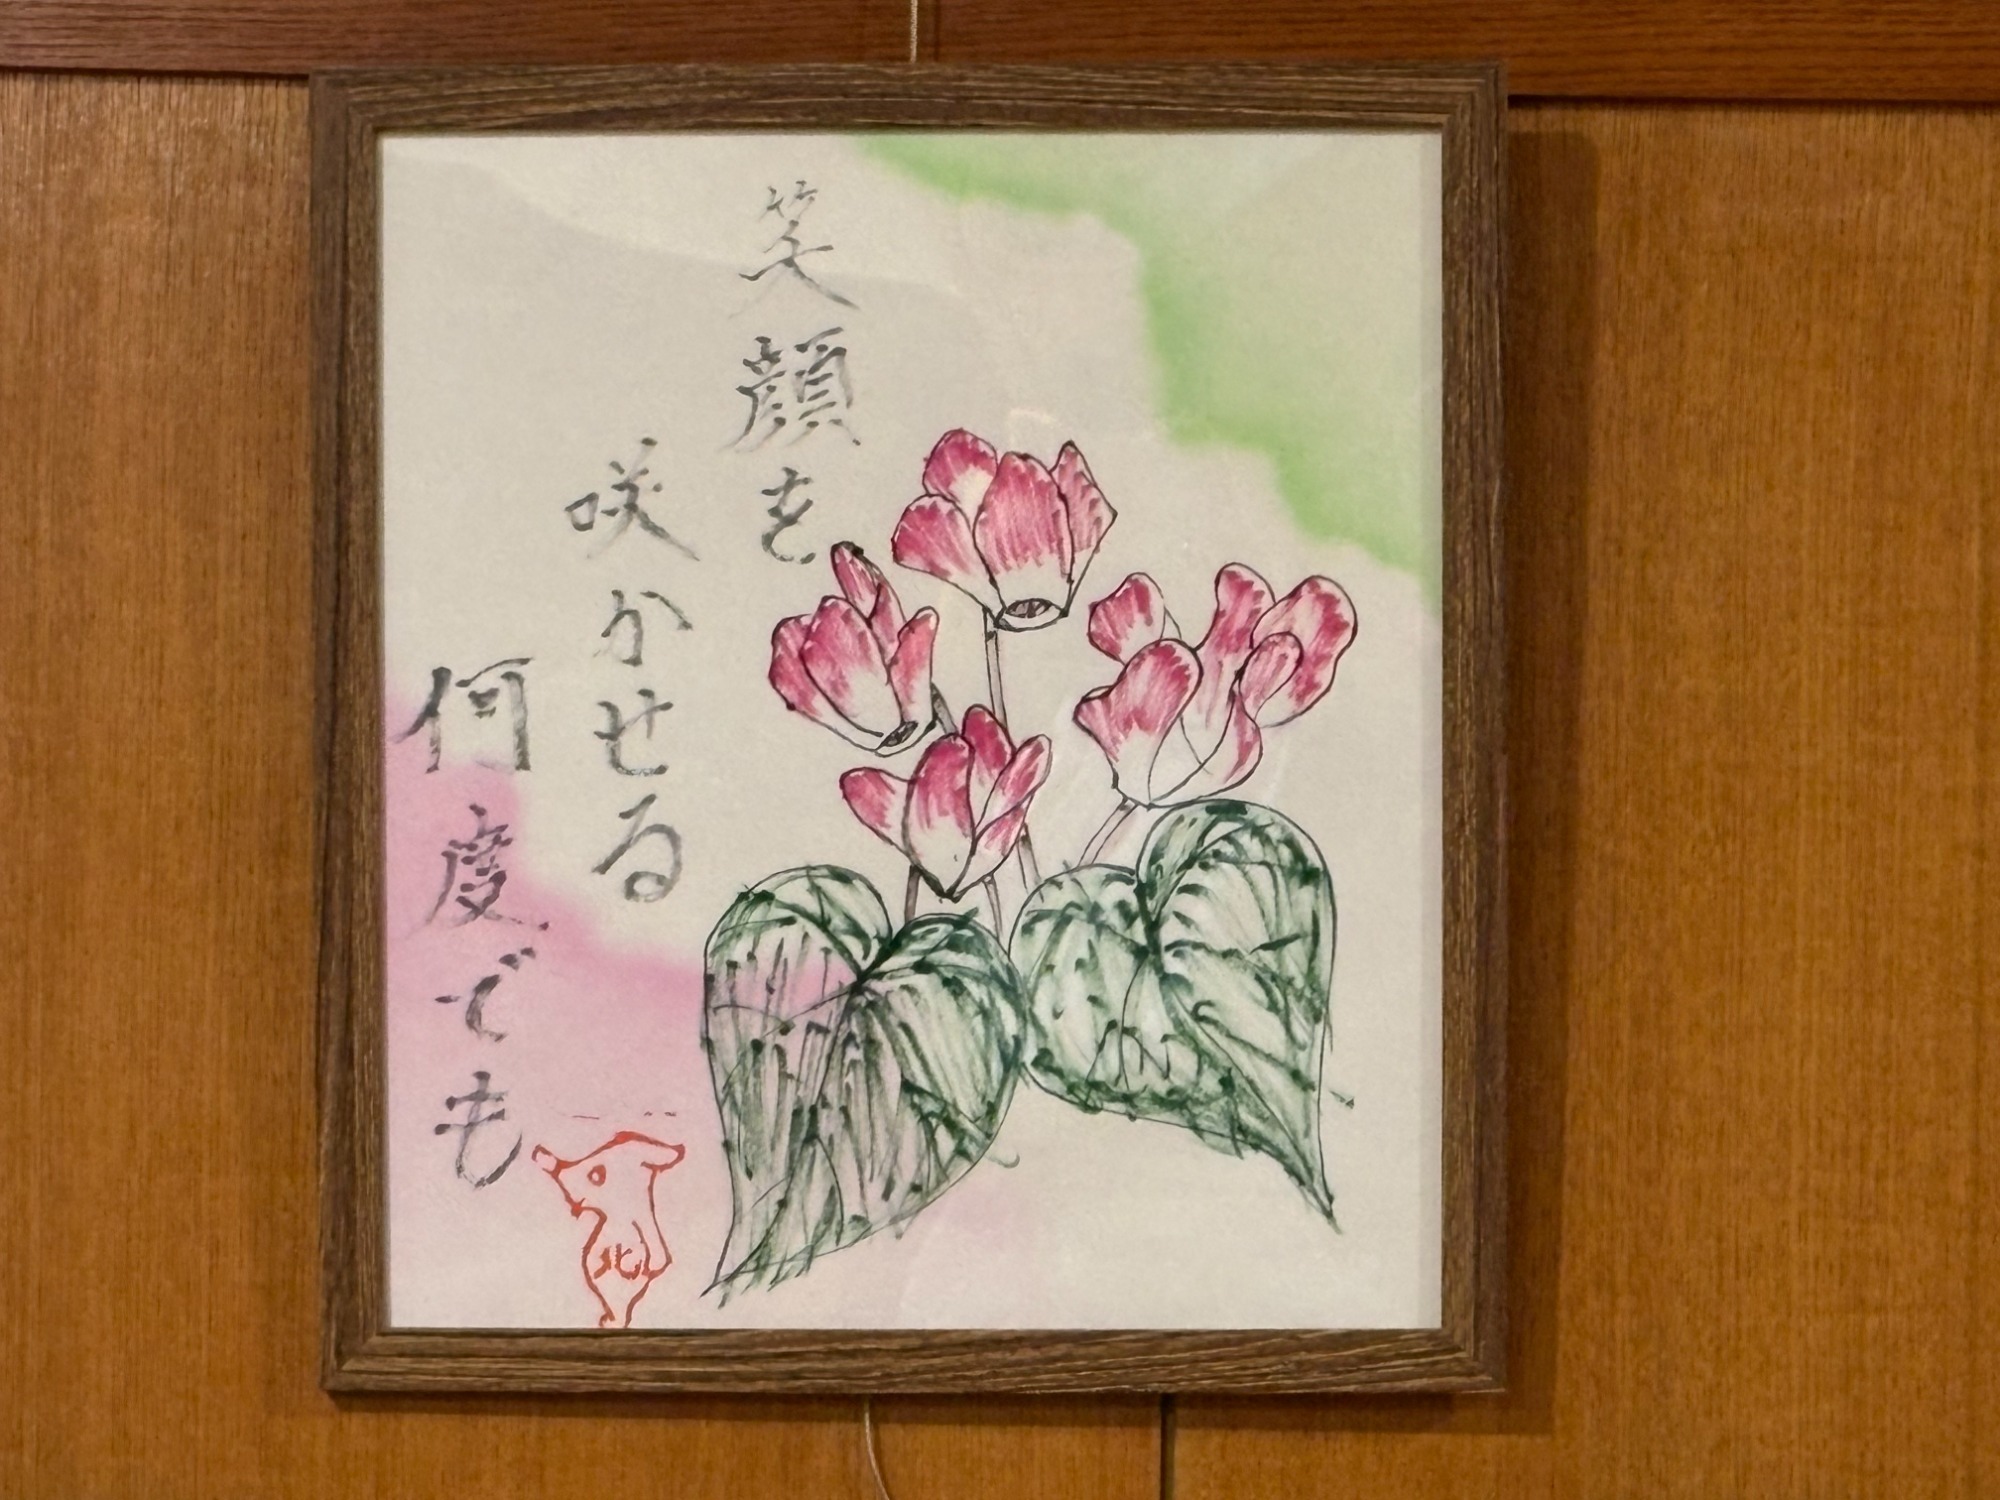 笑顔を
咲かせる
何度でも
北